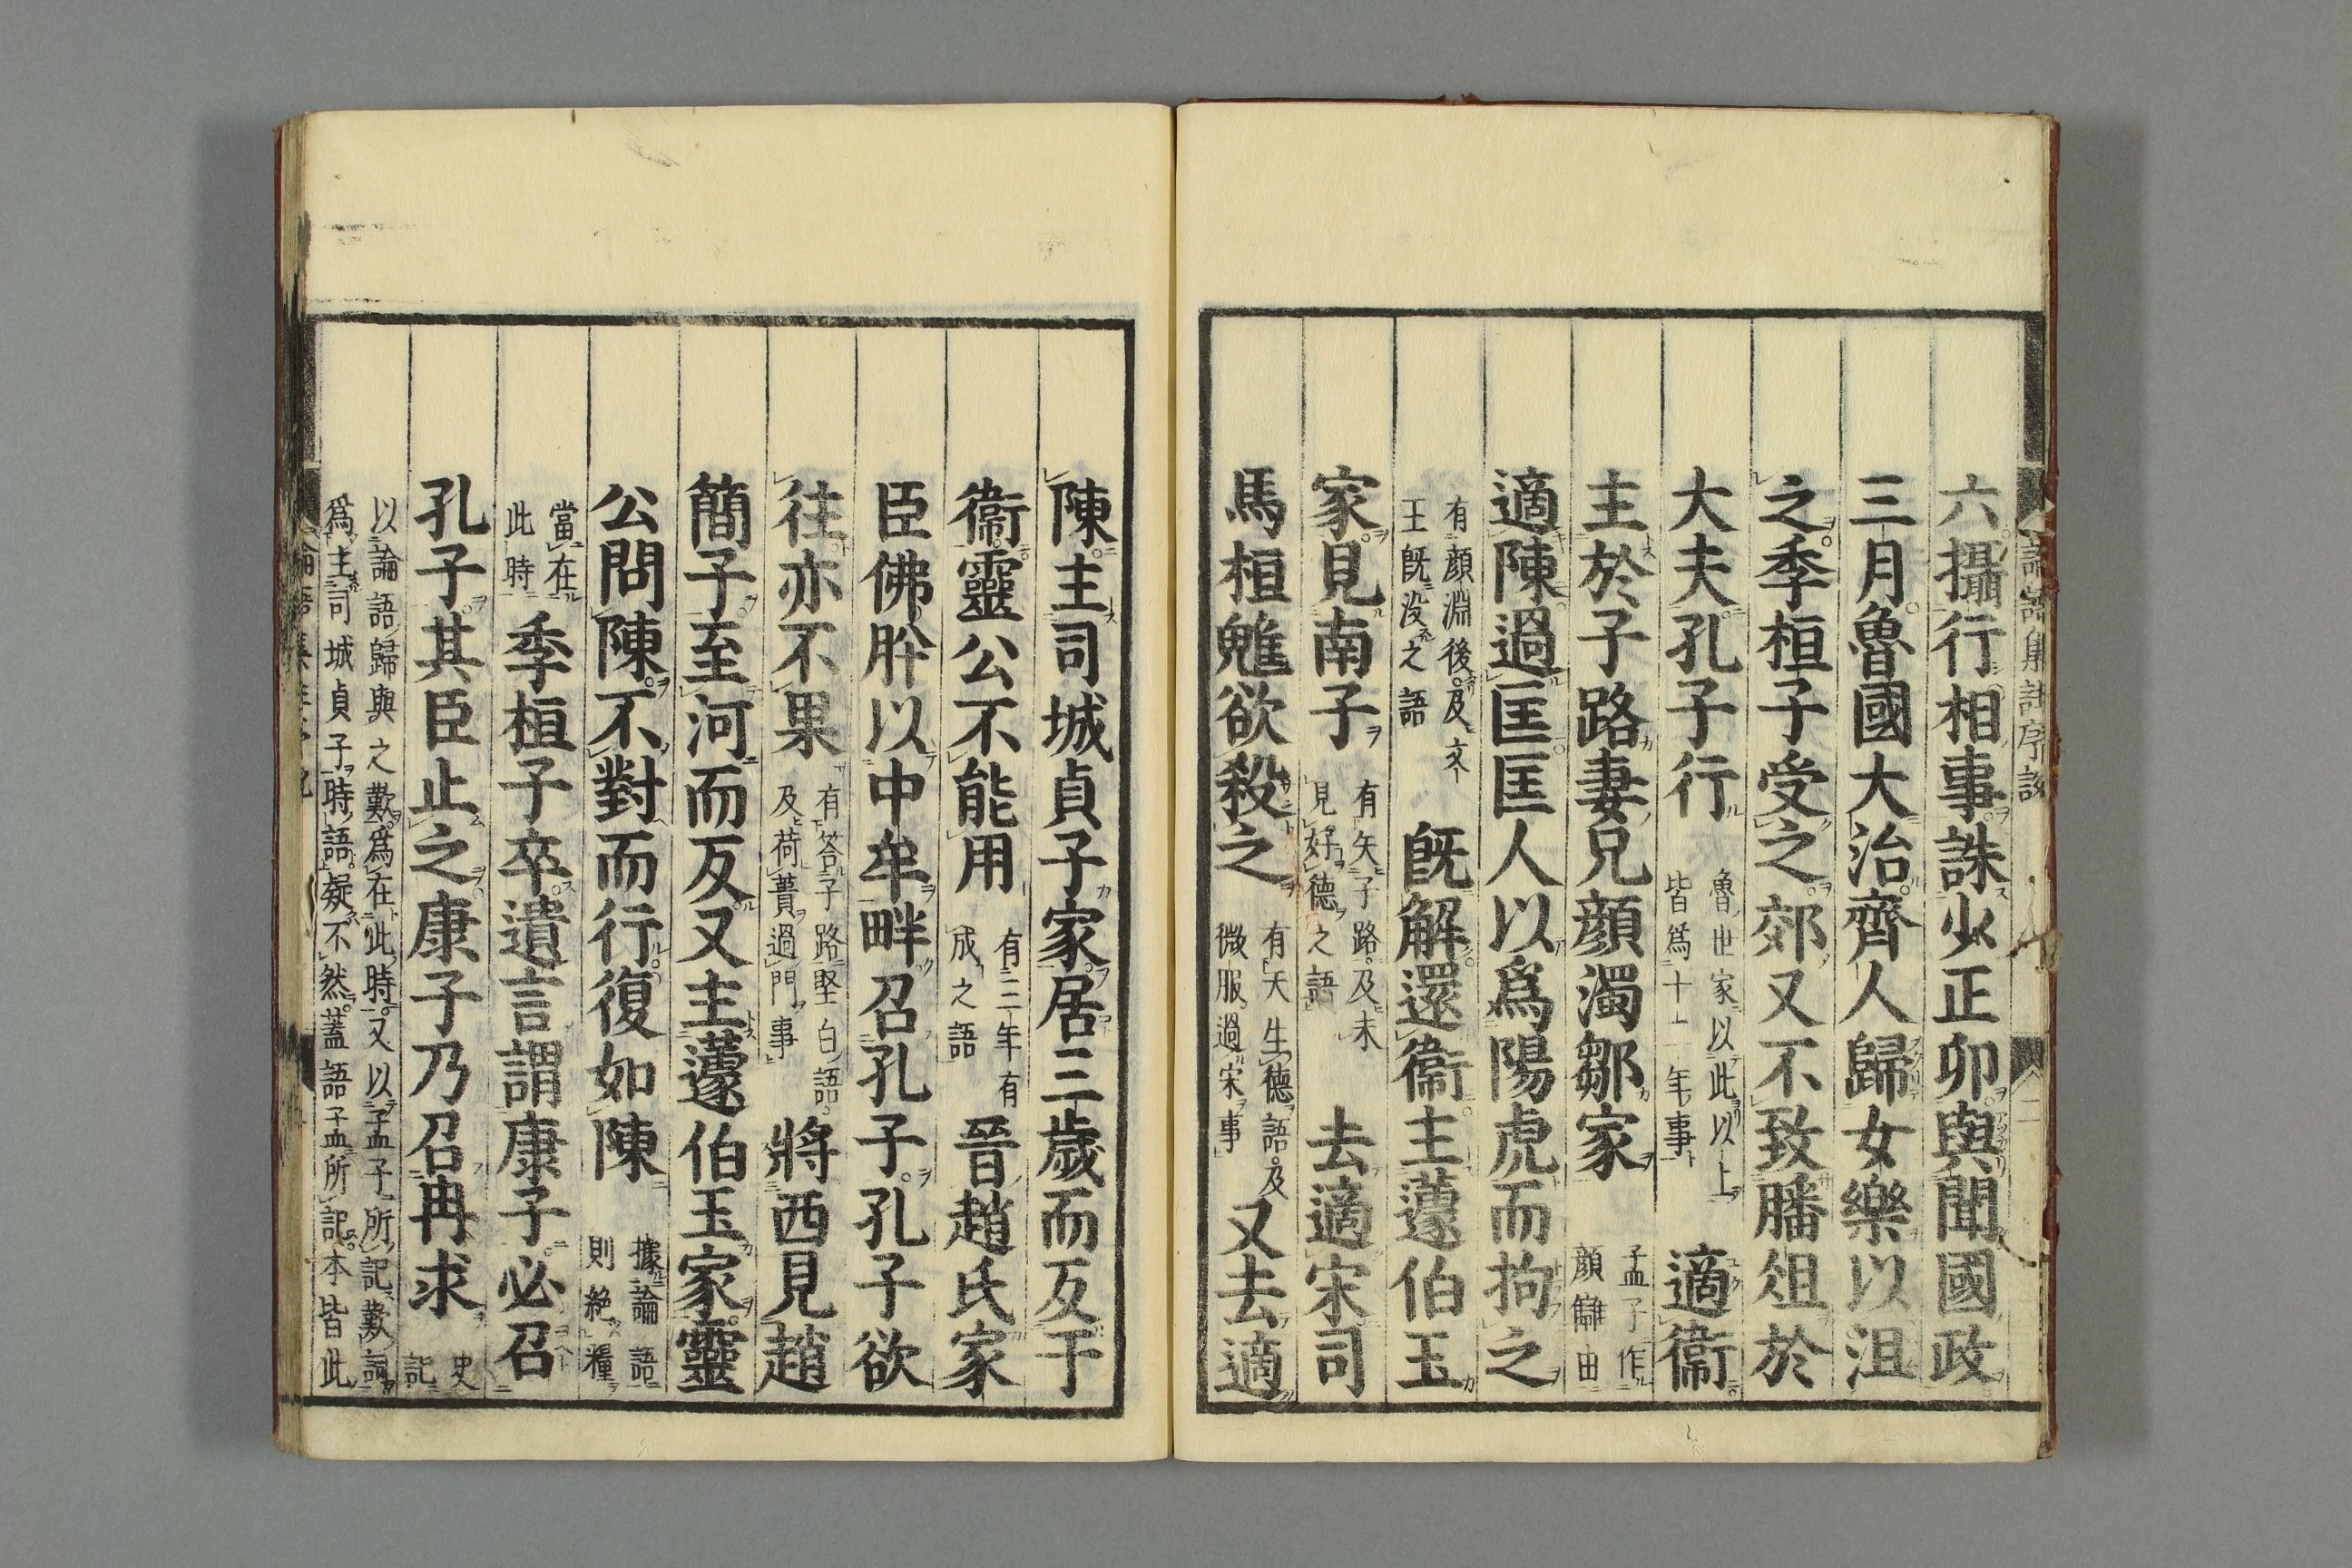 六攝行相事誅少正卯與聞國政
三月魯國大治齊人歸女樂以沮
之季桓子受之郊又不致膰俎於
大夫孔子行
魯世家以此以上
皆爲十二年事
適衞
主於子路妻兄顔濁鄒家
孟子作
顔讎由
適陳過匡匡人以爲陽虎而拘之
有顔淵後及文
王旣没之語
旣解還衞主蘧伯玉
家見南子
有矢子路及未
見好德之語
去適宋司
馬桓魋欲殺之
有天生德語及
微服過宋事
又去適
陳主司城貞子家居三歲而反于
衞靈公不能用
有三年有
成之語
晉趙氏家
臣佛肸以中牟畔召孔子孔子欲
往亦不果
有答子路堅白語
及荷蕢過門事
將西見趙
簡子至河而反又主蘧伯玉家靈
公問陳不對而行復如陳
據論語
則絶糧
當在
此時
季桓子卒遺言謂康子必召
孔子其臣止之康子乃召冉求
史
記
以論語歸與之歎爲在此時又以孟子所記歎詞
爲主司城貞子時語疑不然蓋語孟所記本皆此